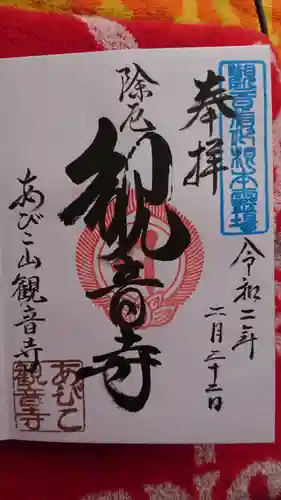 奉拝
令和二年
二月二十二日
除厄
観音寺
あびこ山観音寺
あびこ
観音寺